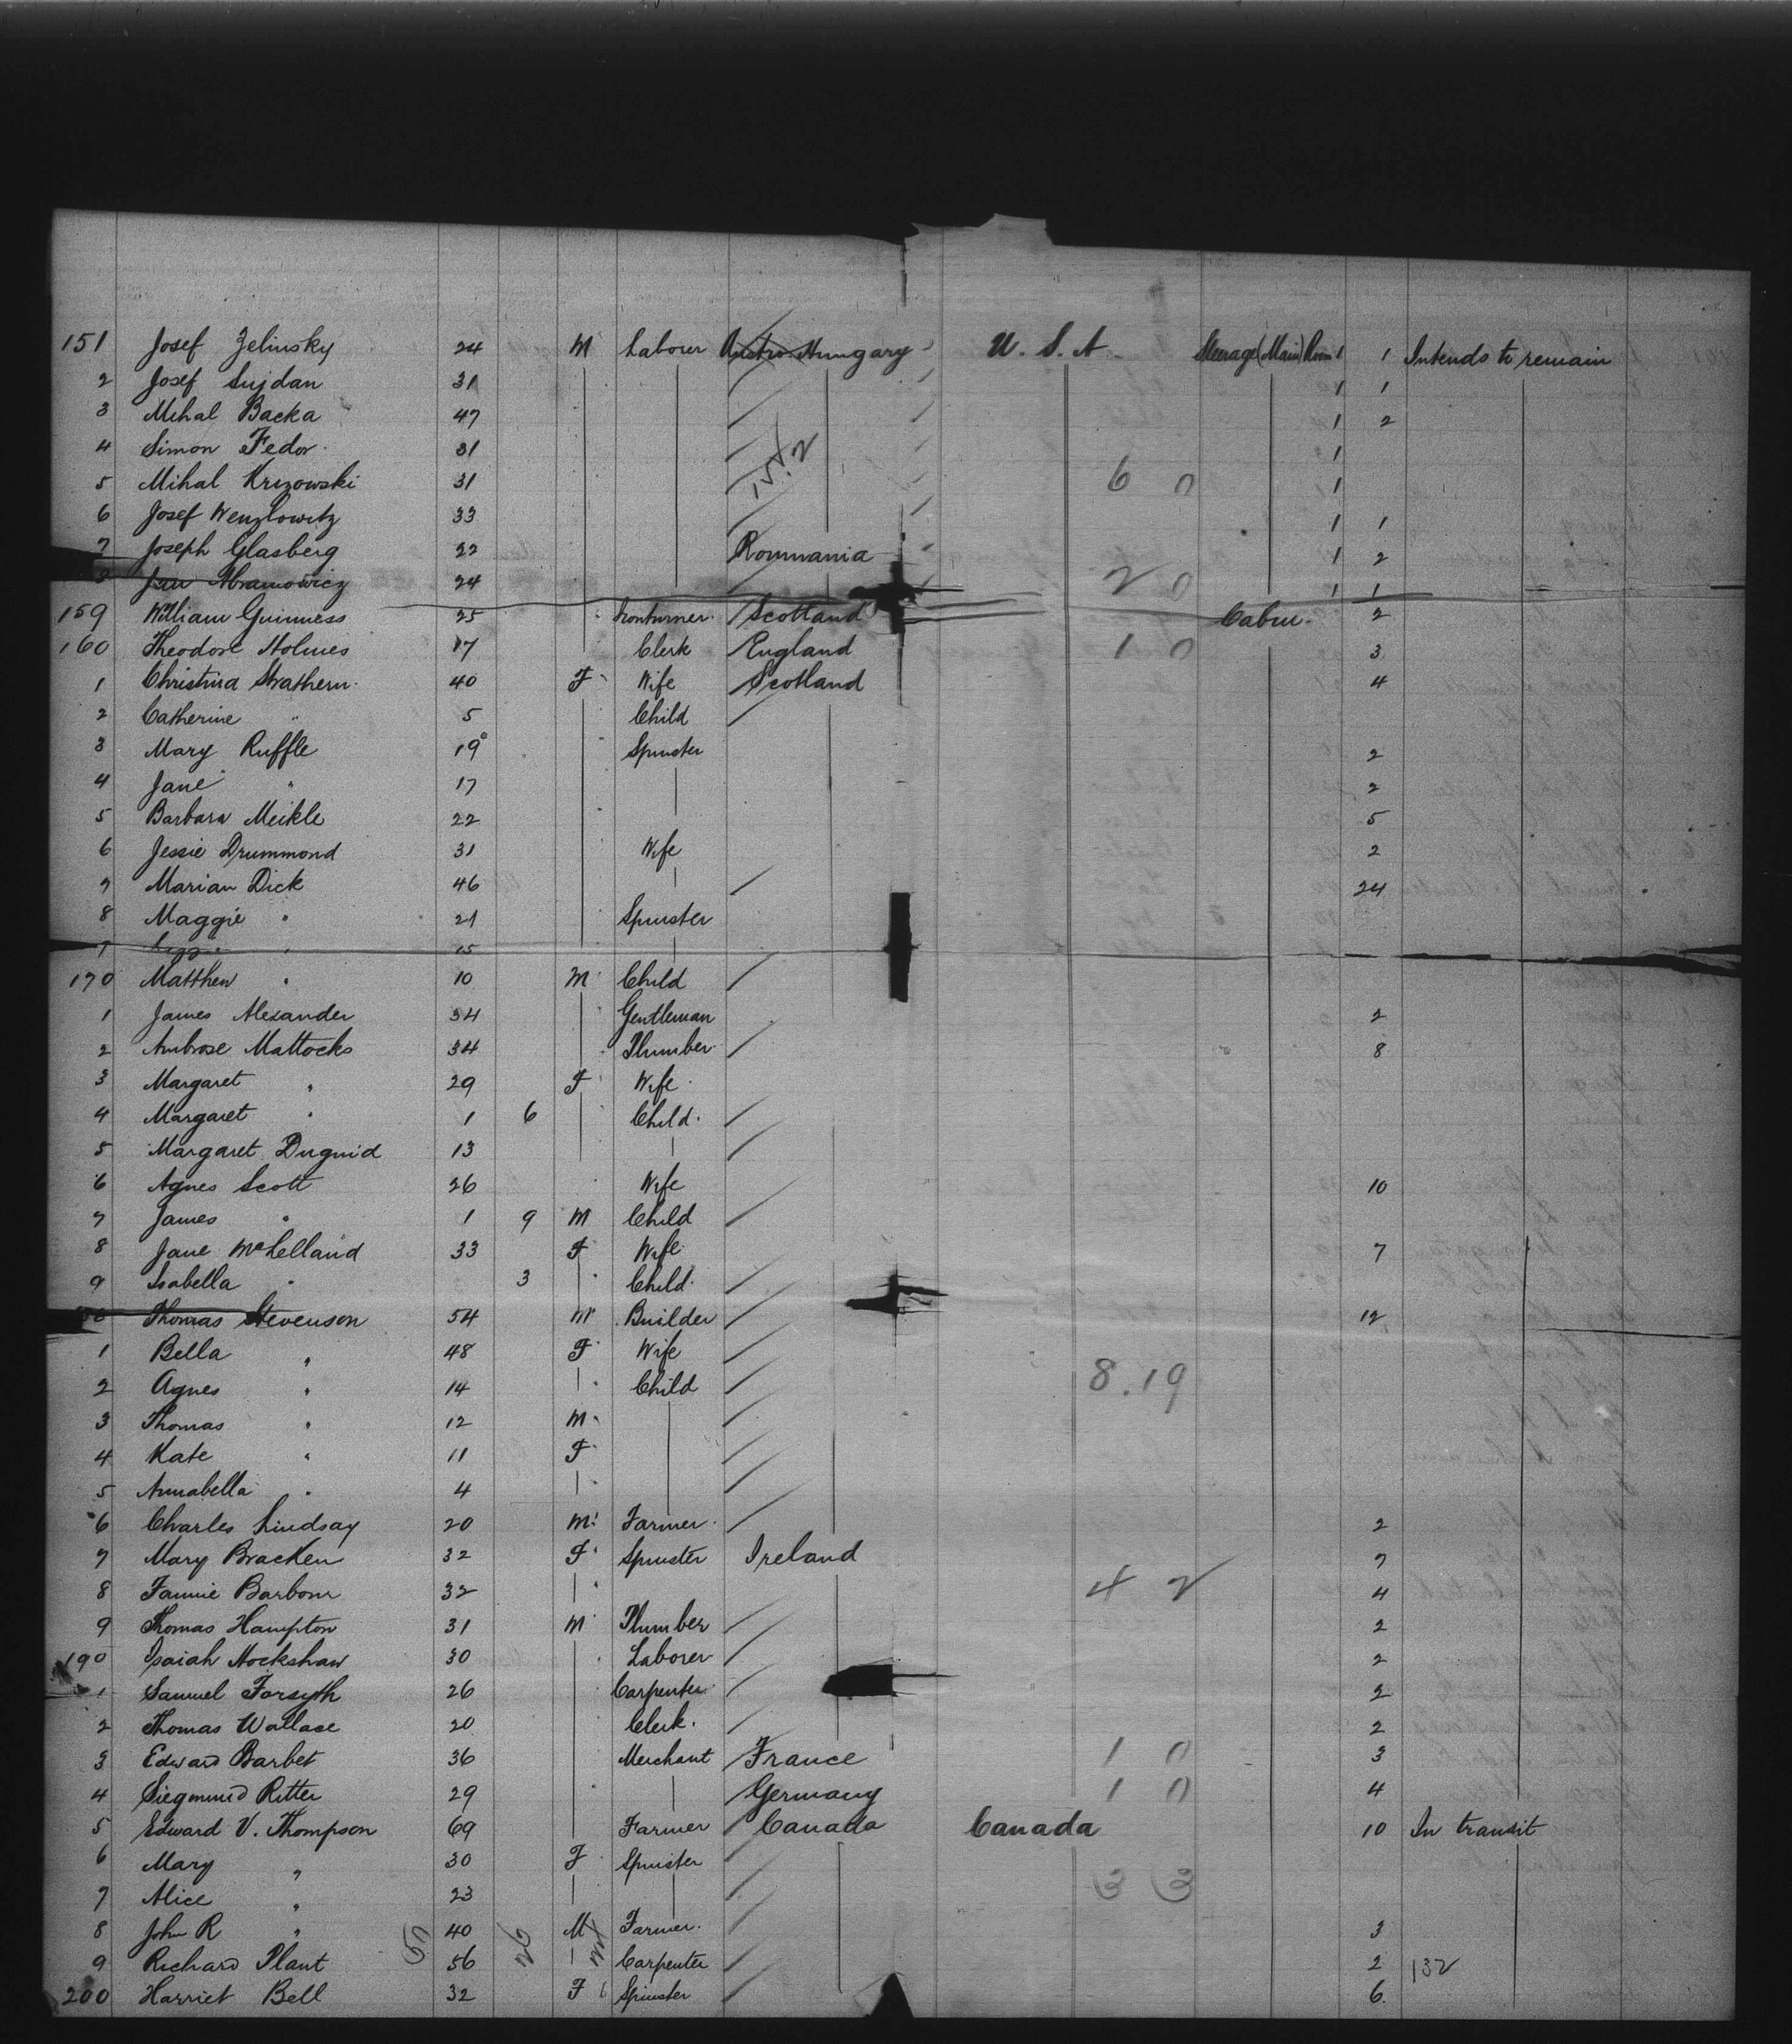 151 Josef Zelinsky 24 M Laborer Austro-Hungary U. S. A. Steerage (Main) Room 1 1 Intends to remain
2 Josef Sujdan 31 1 1
3 Mihal Backa 47 1 2
4 Simon Fedor 31 1
5 Mihal Krizowski 31 6 0 1
6 Josef Wenzlowitz 33 1 1
7 Joseph Glasberg 22 Roumania 1 2
8 Jan Abramowicz 24 2 0 1 1
159 William Guinness 25 Ironturner Scotland Cabin 2
160 Theodore Holmes 17 Clerk England 1 0 3
1 Christina Strathern 40 F Wife Scotland 4
2 Catherine " 5 Child
3 Mary Ruffle 19 Spinster 2
4 Jane " 17 2
5 Barbara Meikle 22 5
6 Jessie Drummond 31 Wife 2
7 Marian Dick 46 24
8 Maggie " 21 Spinster
9 " 15
170 Matthew " 10 M Child
1 James Alexander 34 Gentleman 2
2 Ambrose Mattocks 34 Plumber 8
3 Margaret " 29 F Wife
4 Margaret " 1 6 Child
5 Margaret Duguid 13
6 Agnes Scott 26 Wife 10
7 James " 1 9 M Child
8 Jane McLelland 33 F Wife 7
9 Isabella " 3 Child
Thomas Stevenson 54 M Builder 12
1 Bella " 48 F Wife
2 Agnes " 14 Child 8.19
3 Thomas " 12 M
4 Kate " 11 F
5 Annabella " 4
6 Charles Lindsay 20 M Farmer 2
7 Mary Bracken 32 F Spinster Ireland 7
8 Fannie Barbour 32 4 2 4
9 Thomas Hampton 31 M Plumber 2
190 Isaiah Hockshaw 30 Laborer 2
1 Samuel Forsyth 26 Carpenter 2
2 Thomas Wallace 20 Clerk 2
3 Edward Barbet 36 Merchant France 1 0 3
4 Siegmund Ritter 29 Germany 1 0 4
5 Edward V. Thompson 69 Farmer Canada Canada 10 In transit
6 Mary " 30 F Spinster
7 Alice " 23 3 3
8 John R " 40 M Farmer 3
9 Richard Plant 56 Carpenter 2 132
200 Harriet Bell 32 F Spinster 6